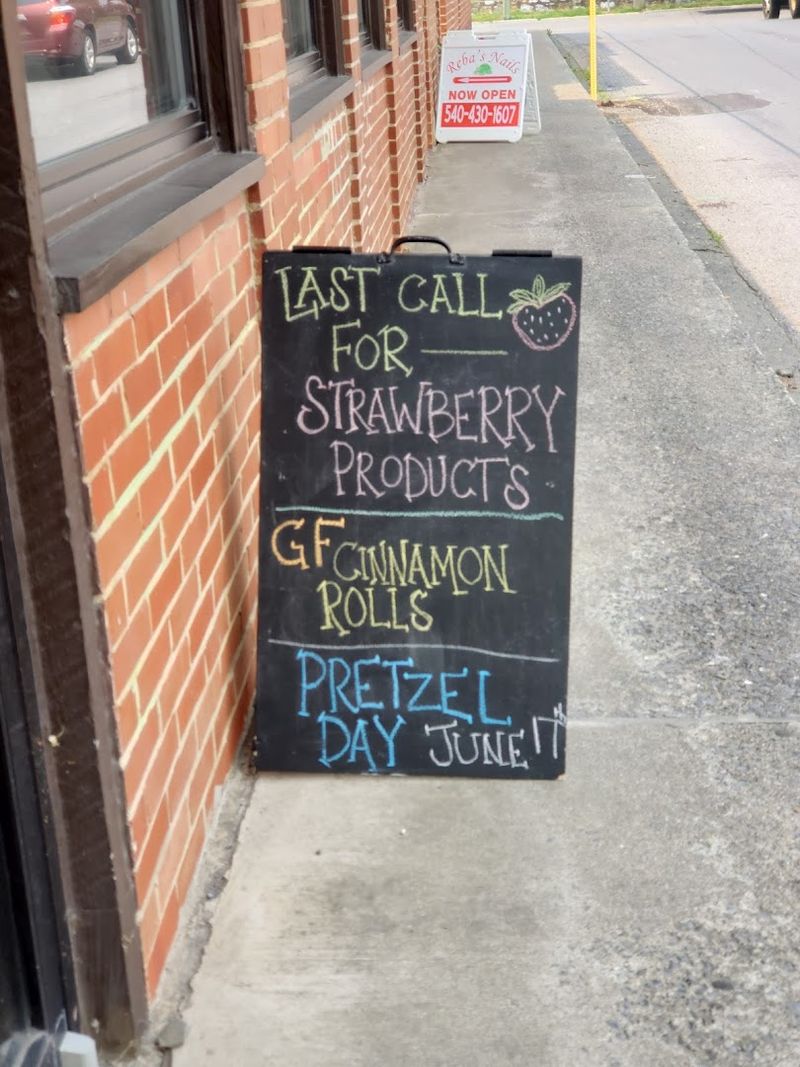 Reba's Nails
NOW OPEN
540-430-1607
LAST CALL
FOR
STRAWBERRY
PRODUCTS
GF CINNAMON
ROLLS
PRETZEL
DAY JUNE 17th